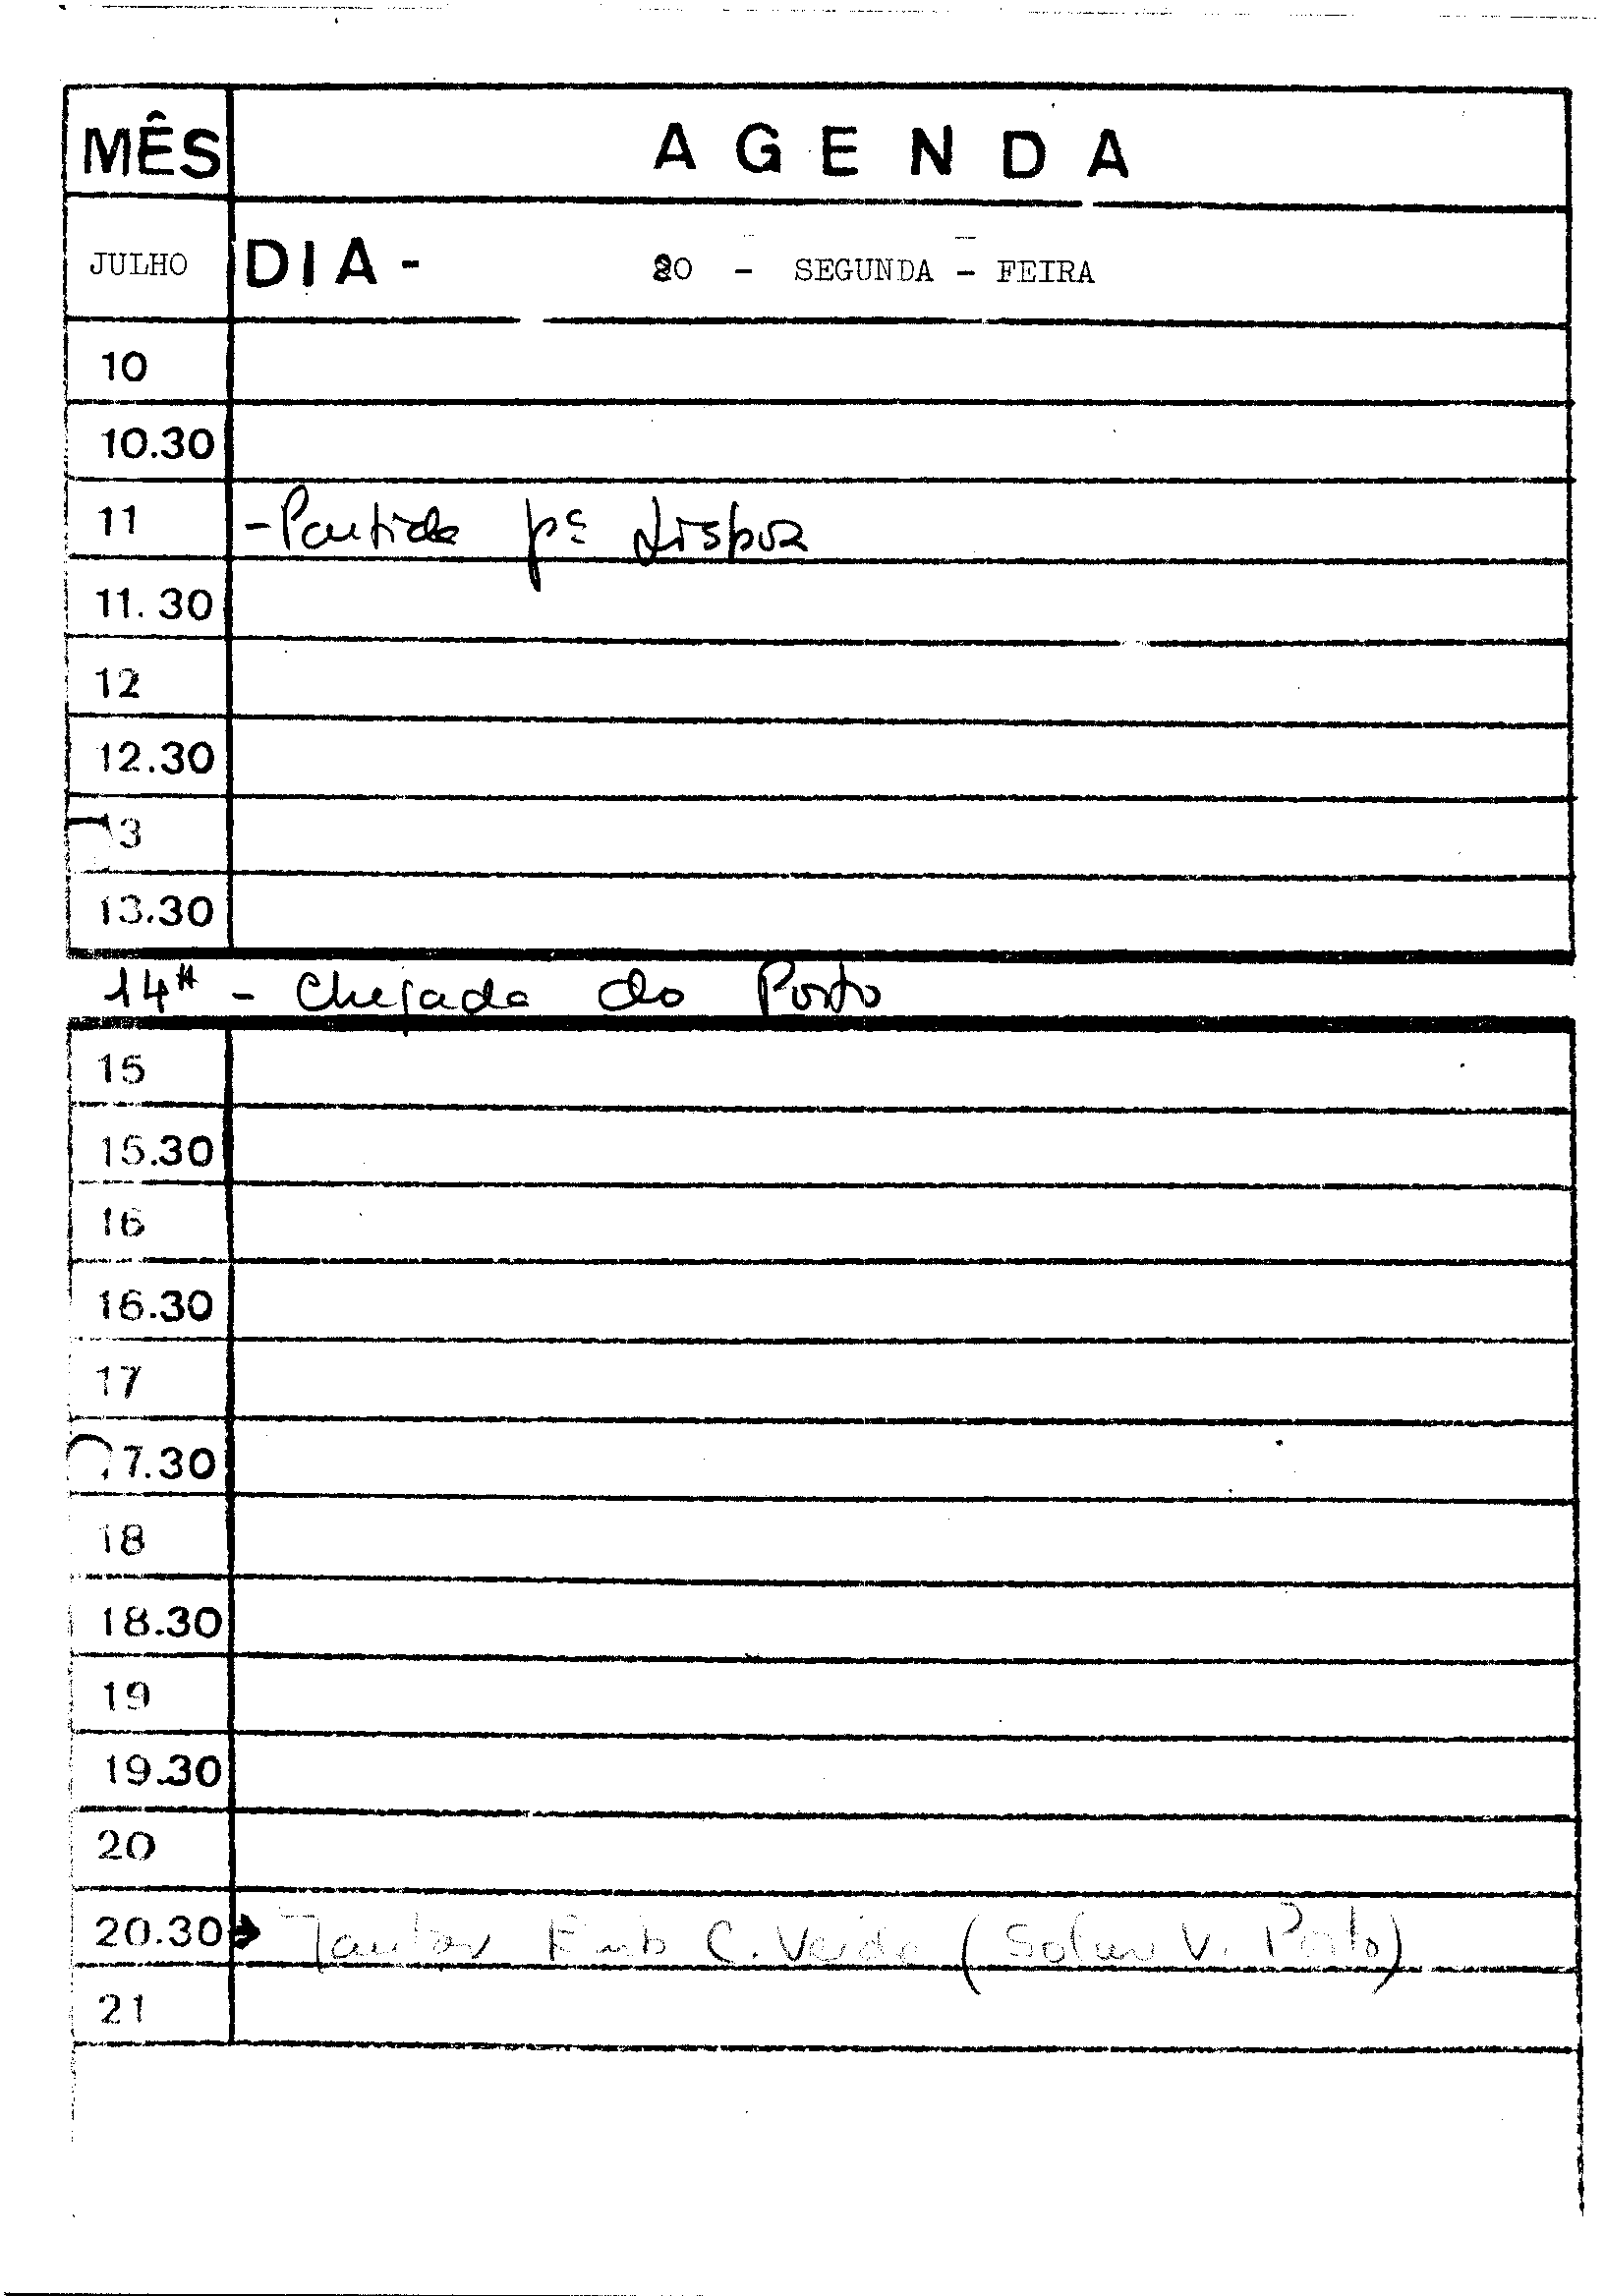 MÊS AGENDA
JULHO DIA - 20 - SEGUNDA - FEIRA
10
10.30
11 - Partida pª Lisboa
11.30
12
12.30
13
13.30
14H - Chegada do Porto
15
15.30
16
16.30
17
17.30
18
18.30
19
19.30
20
20.30 → Jantar Emb C. Verde (Solar V. Porto)
21